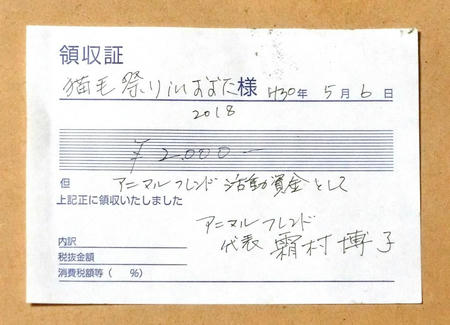 領収証
猫毛祭りinおばた様 H30年 5月 6日
2018
¥2.000-
但 アニマルフレンド活動資金として
上記正に領収いたしました
アニマルフレンド
代表 霜村博子
内訳
税抜金額
消費税額等( %)